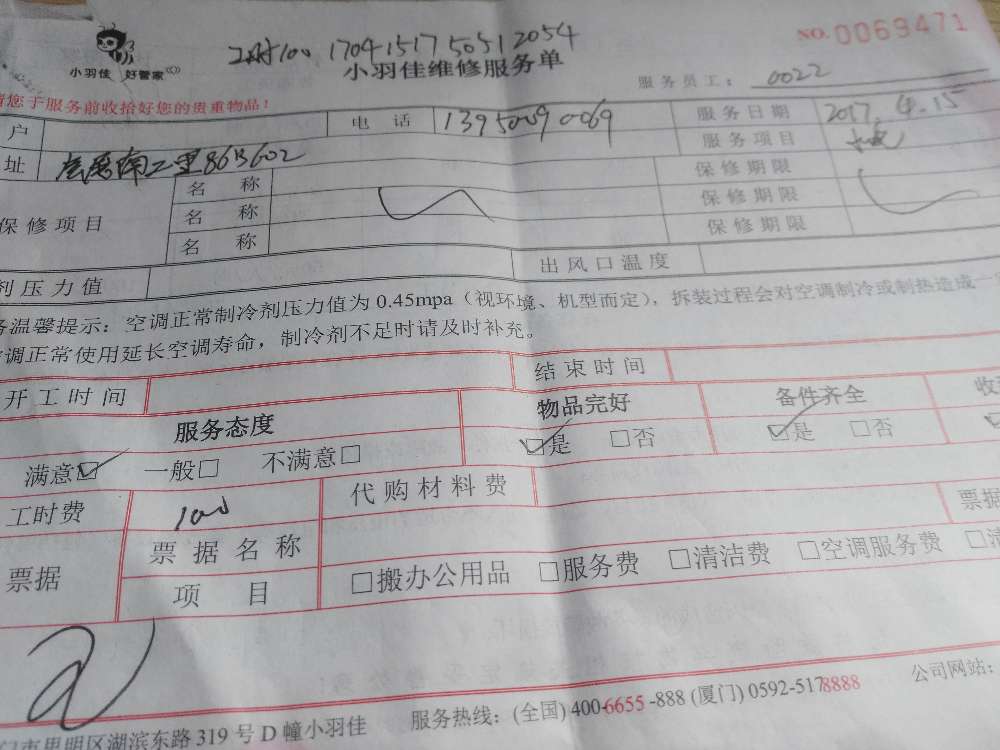 NO. 0069471
工时100 17041517 50512054
小羽佳 好管家
小羽佳维修服务单
服务员工: 0022
请您于服务前收拾好您的贵重物品!
户 电话 13950090069 服务日期 2017.4.15
址 南二里86号602 服务项目
保修项目 名称 保修期限
名称 保修期限
名称 保修期限
剂压力值 出风口温度
温馨提示:空调正常制冷剂压力值为 0.45mpa(视环境、机型而定),拆装过程会对空调制冷或制热造成一
调正常使用延长空调寿命,制冷剂不足时请及时补充。
开工时间 结束时间
服务态度 物品完好 备件齐全 收
满意☑ 一般□ 不满意□ ☑是 □否 ☑是 □否
工时费 100 代购材料费
票据 票据名称 票据
项目 □搬办公用品 □服务费 □清洁费 □空调服务费 □清
门市思明区湖滨东路 319 号 D 幢小羽佳 服务热线:(全国) 400-6655-888 (厦门) 0592-5178888 公司网站: